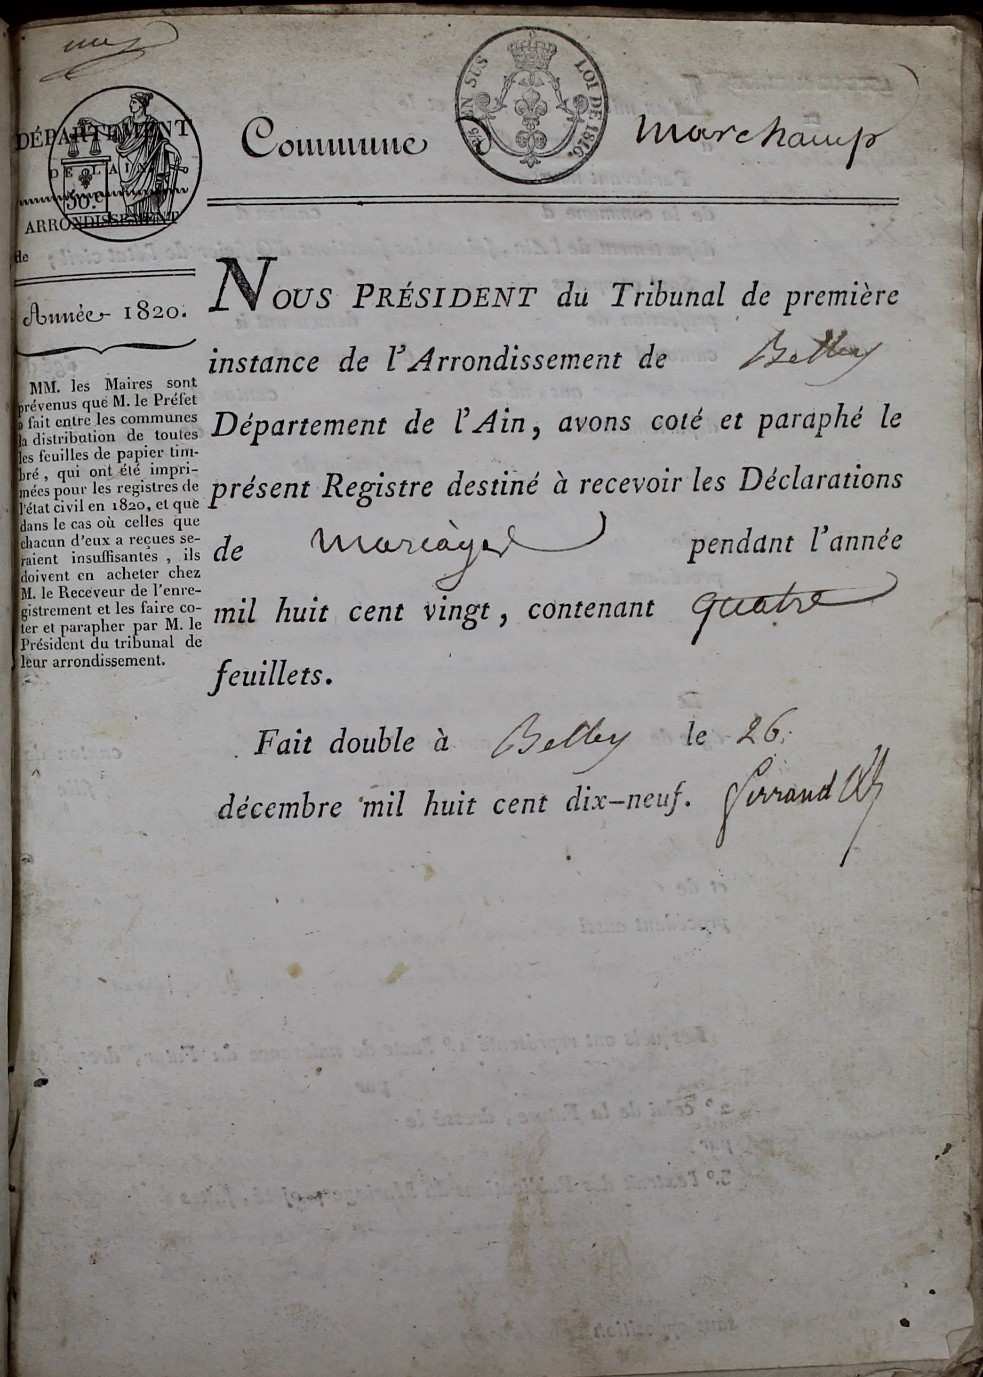 EN SUS
LOI DE 1816.
DÉPARTEMENT
DE L'AIN
50.c
ARRONDISSEMENT
de
Commune d Marchamp
Année 1820.
MM. les Maires sont
prévenus que M. le Préfet
a fait entre les communes
la distribution de toutes
les feuilles de papier tim-
bré, qui ont été impri-
mées pour les registres de
l'état civil en 1820, et que
dans le cas où celles que
chacun d'eux a reçues se-
raient insuffisantes, ils
doivent en acheter chez
M. le Receveur de l'enre-
gistrement et les faire co-
ter et parapher par M. le
Président du tribunal de
leur arrondissement.
NOUS PRÉSIDENT du Tribunal de première
instance de l'Arrondissement de Belley
Département de l'Ain, avons coté et paraphé le
présent Registre destiné à recevoir les Déclarations
de mariages pendant l'année
mil huit cent vingt, contenant quatre
feuillets.
Fait double à Belley le 26
décembre mil huit cent dix-neuf.